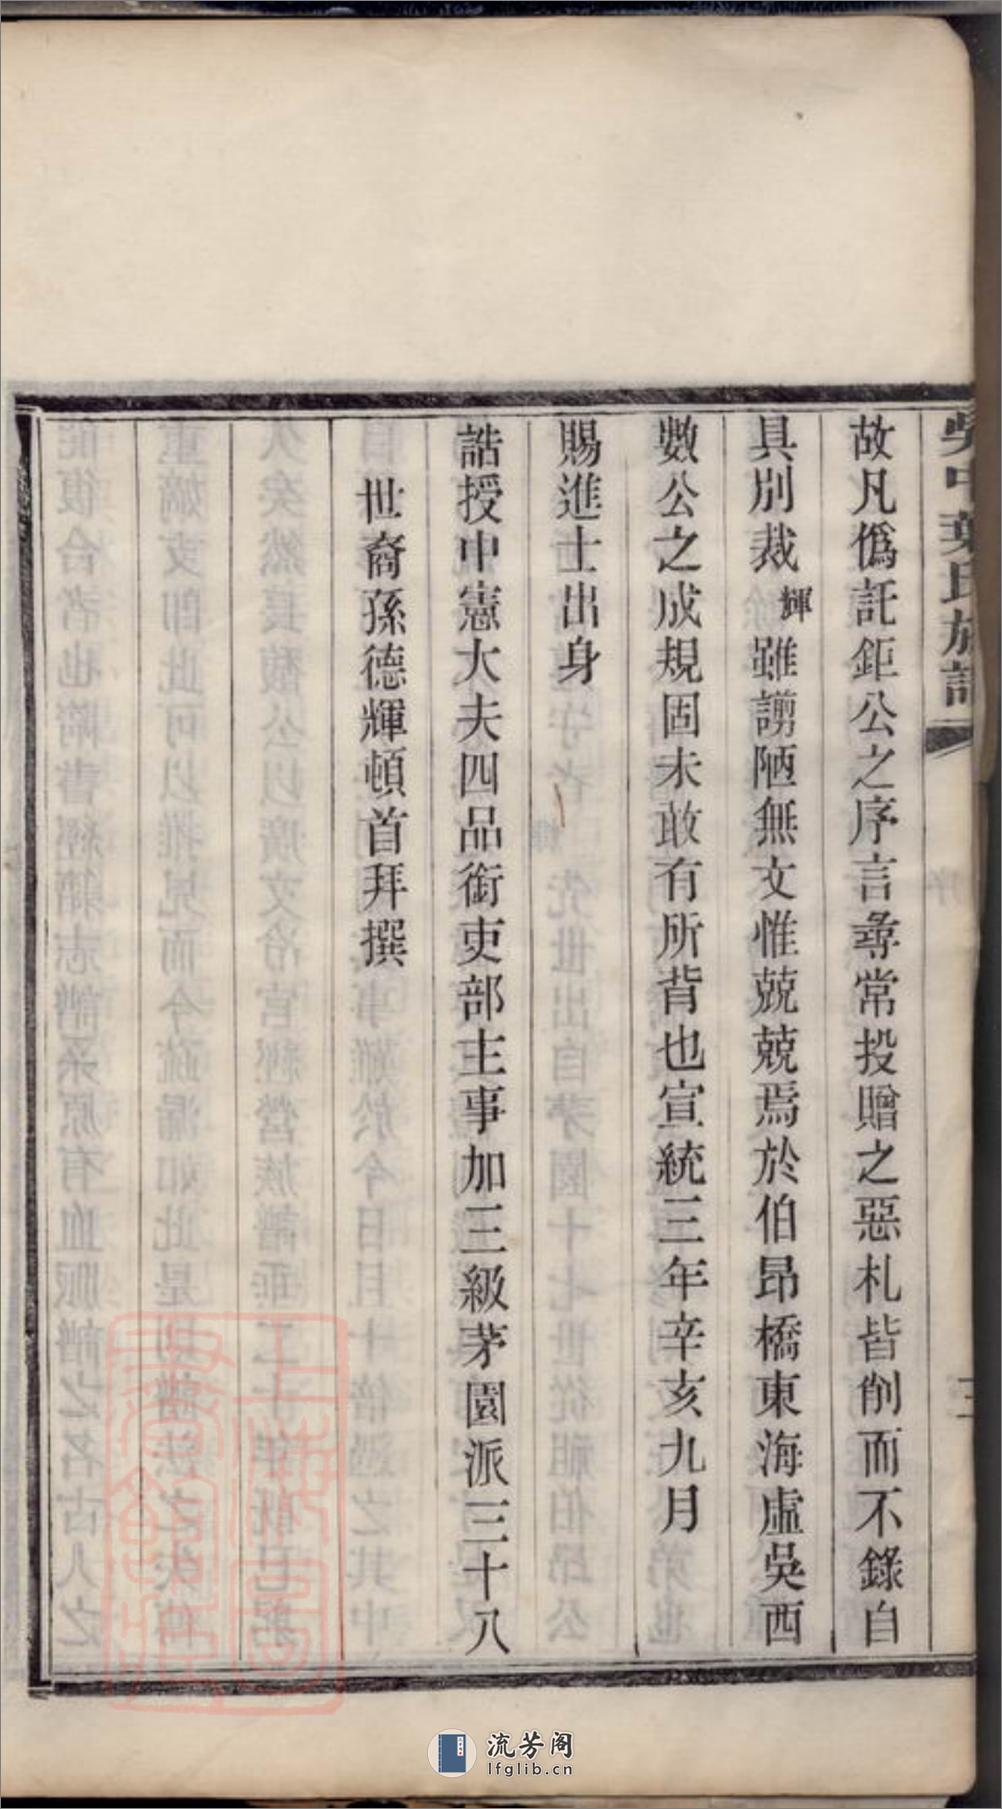 吳中葉氏族譜
序
三
故凡僞託鉅公之序言尋常投贈之惡札皆削而不錄自
具別裁輝雖謭陋無文惟兢兢焉於伯昂橋東海虛吳西
數公之成規固未敢有所背也宣統三年辛亥九月
賜進士出身
誥授中憲大夫四品銜吏部主事加三級茅園派三十八
世裔孫德輝頓首拜撰
流芳阁
lfglib.cn